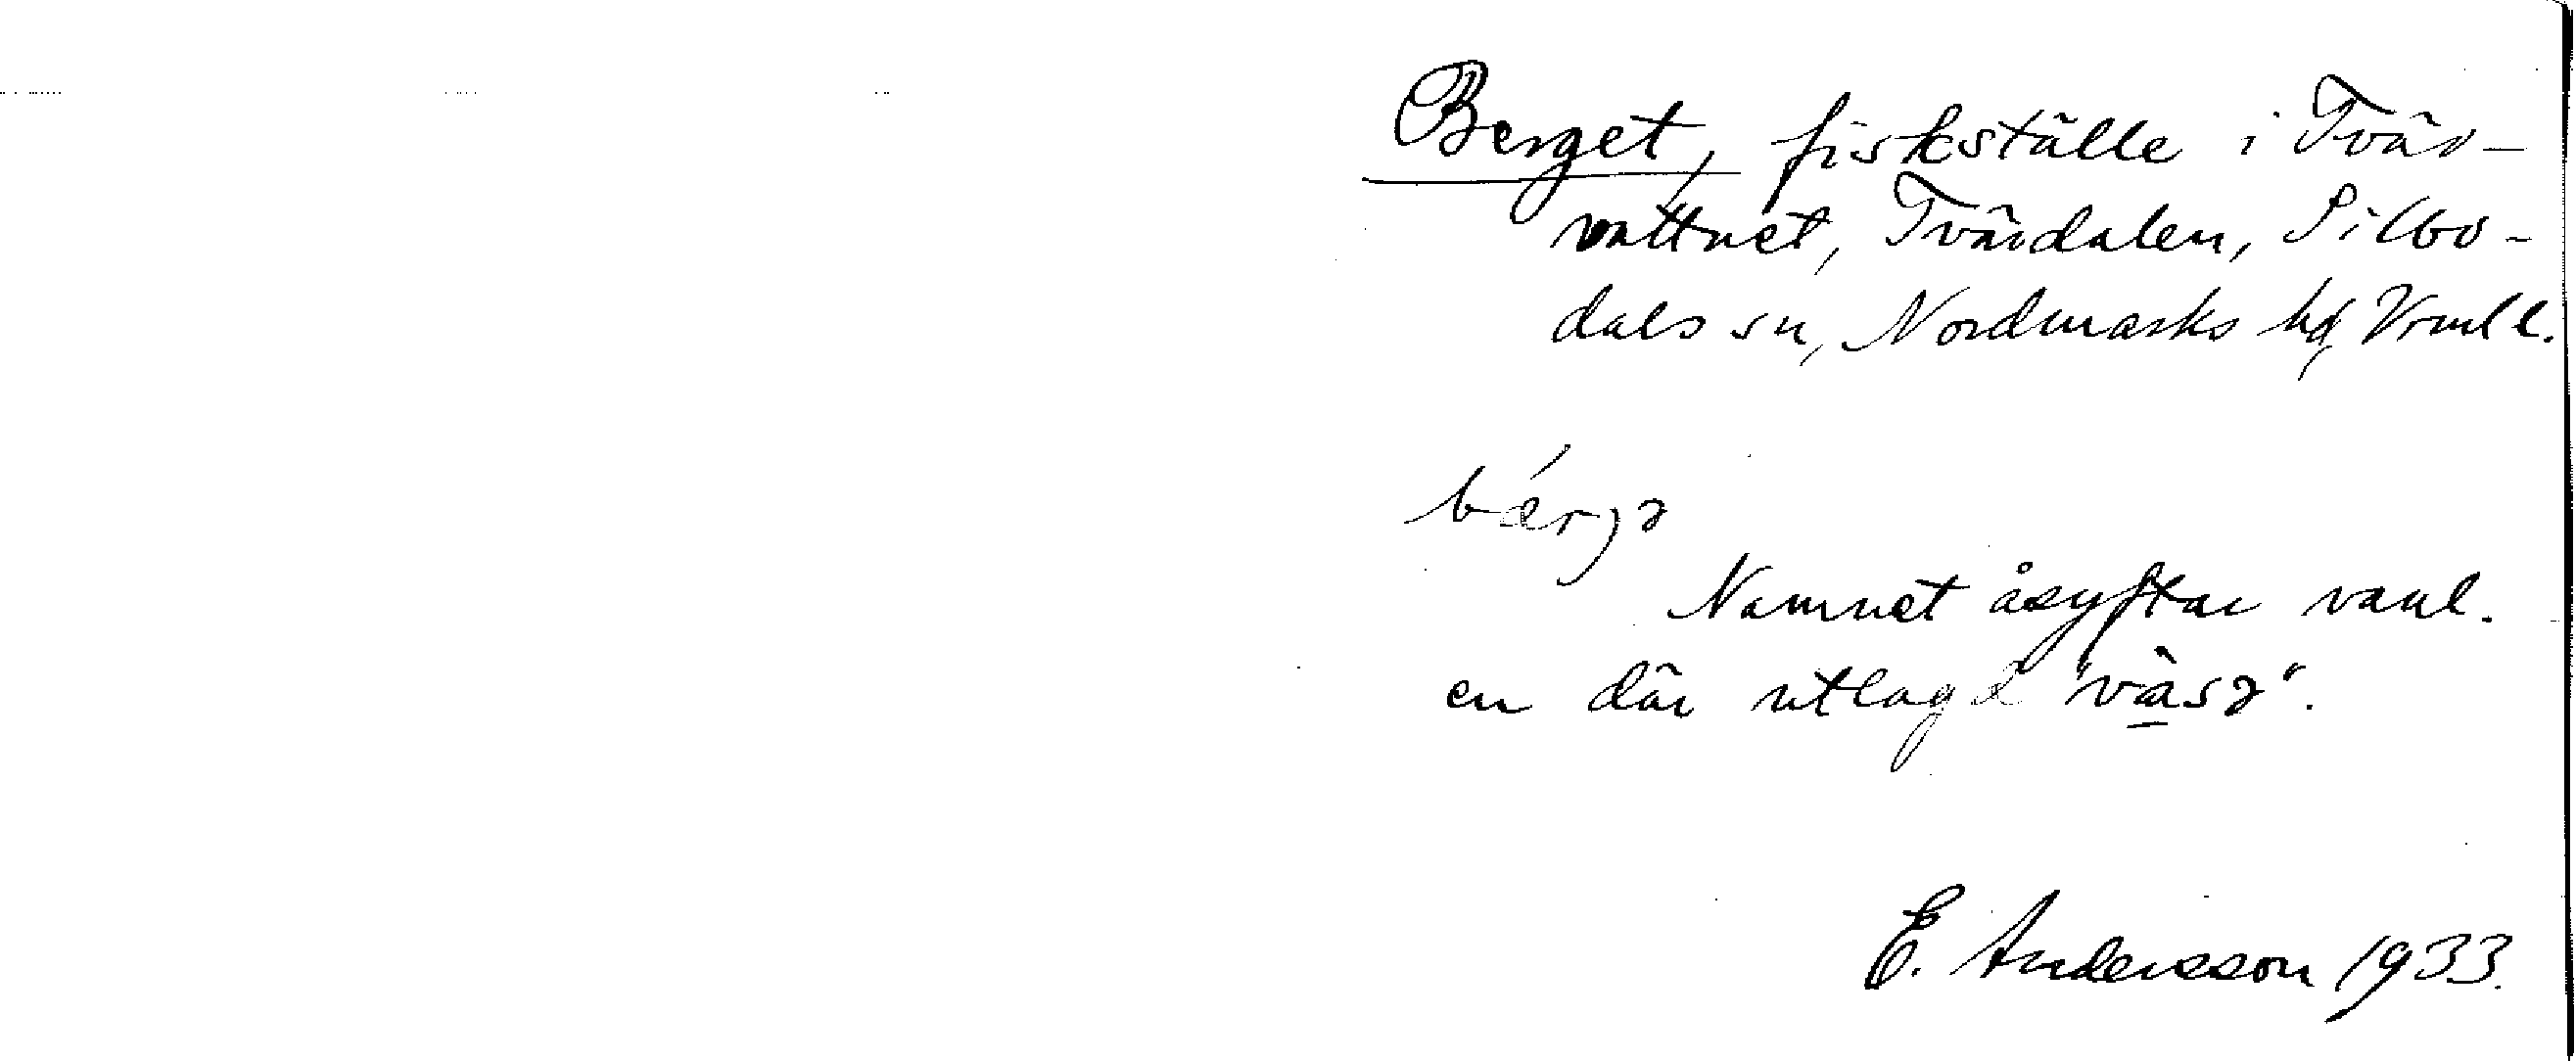 Berget, fiskställe i Tvär-
vattnet, Tvärdalen, Silbo-
dals sn, Nordmarks hd, Vrml l.
bærjə
Namnet åsyftar vanl.
en där utlagd "vàsə".
E. Andersson 1933.